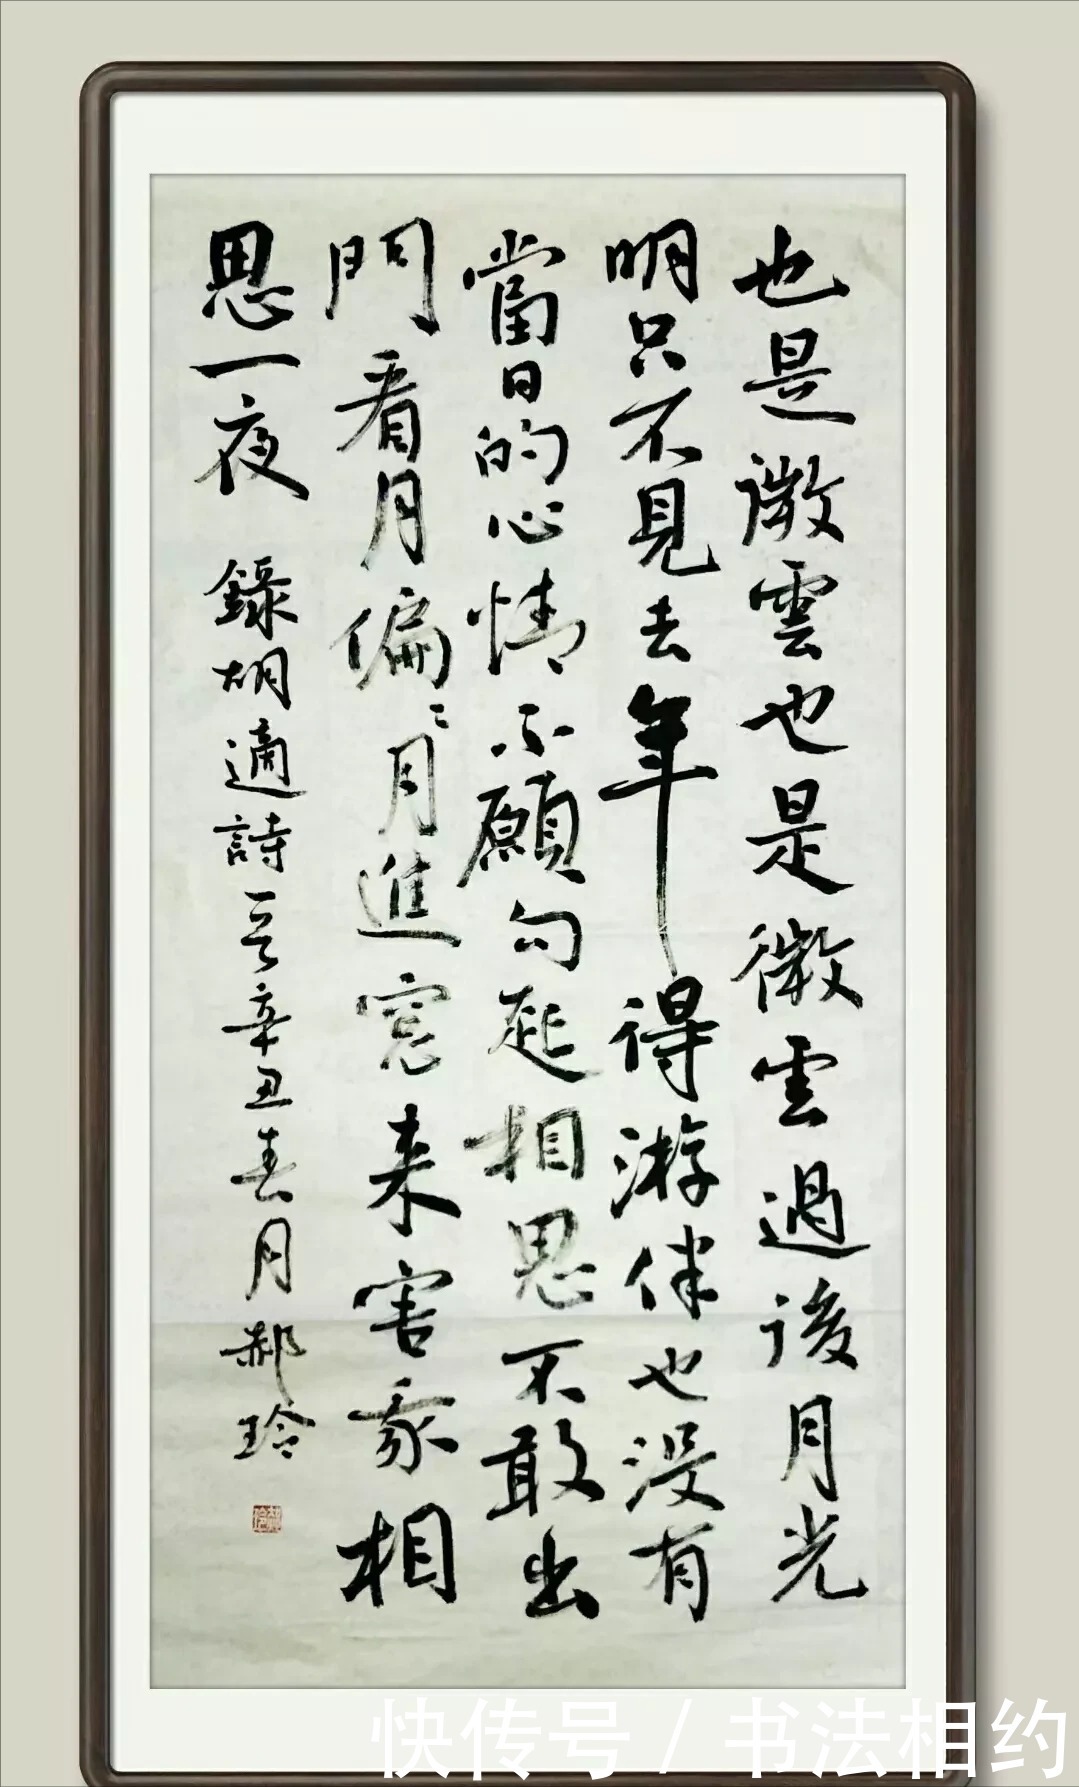 也是微雲也是微雲過後月光
明只不見去年得游伴也沒有
當日的心情不願勾起相思不敢出
門看月偏〻月進窓来害我相
思一夜 錄胡適詩一首辛丑春月郝玲
快传号 / 书法相约